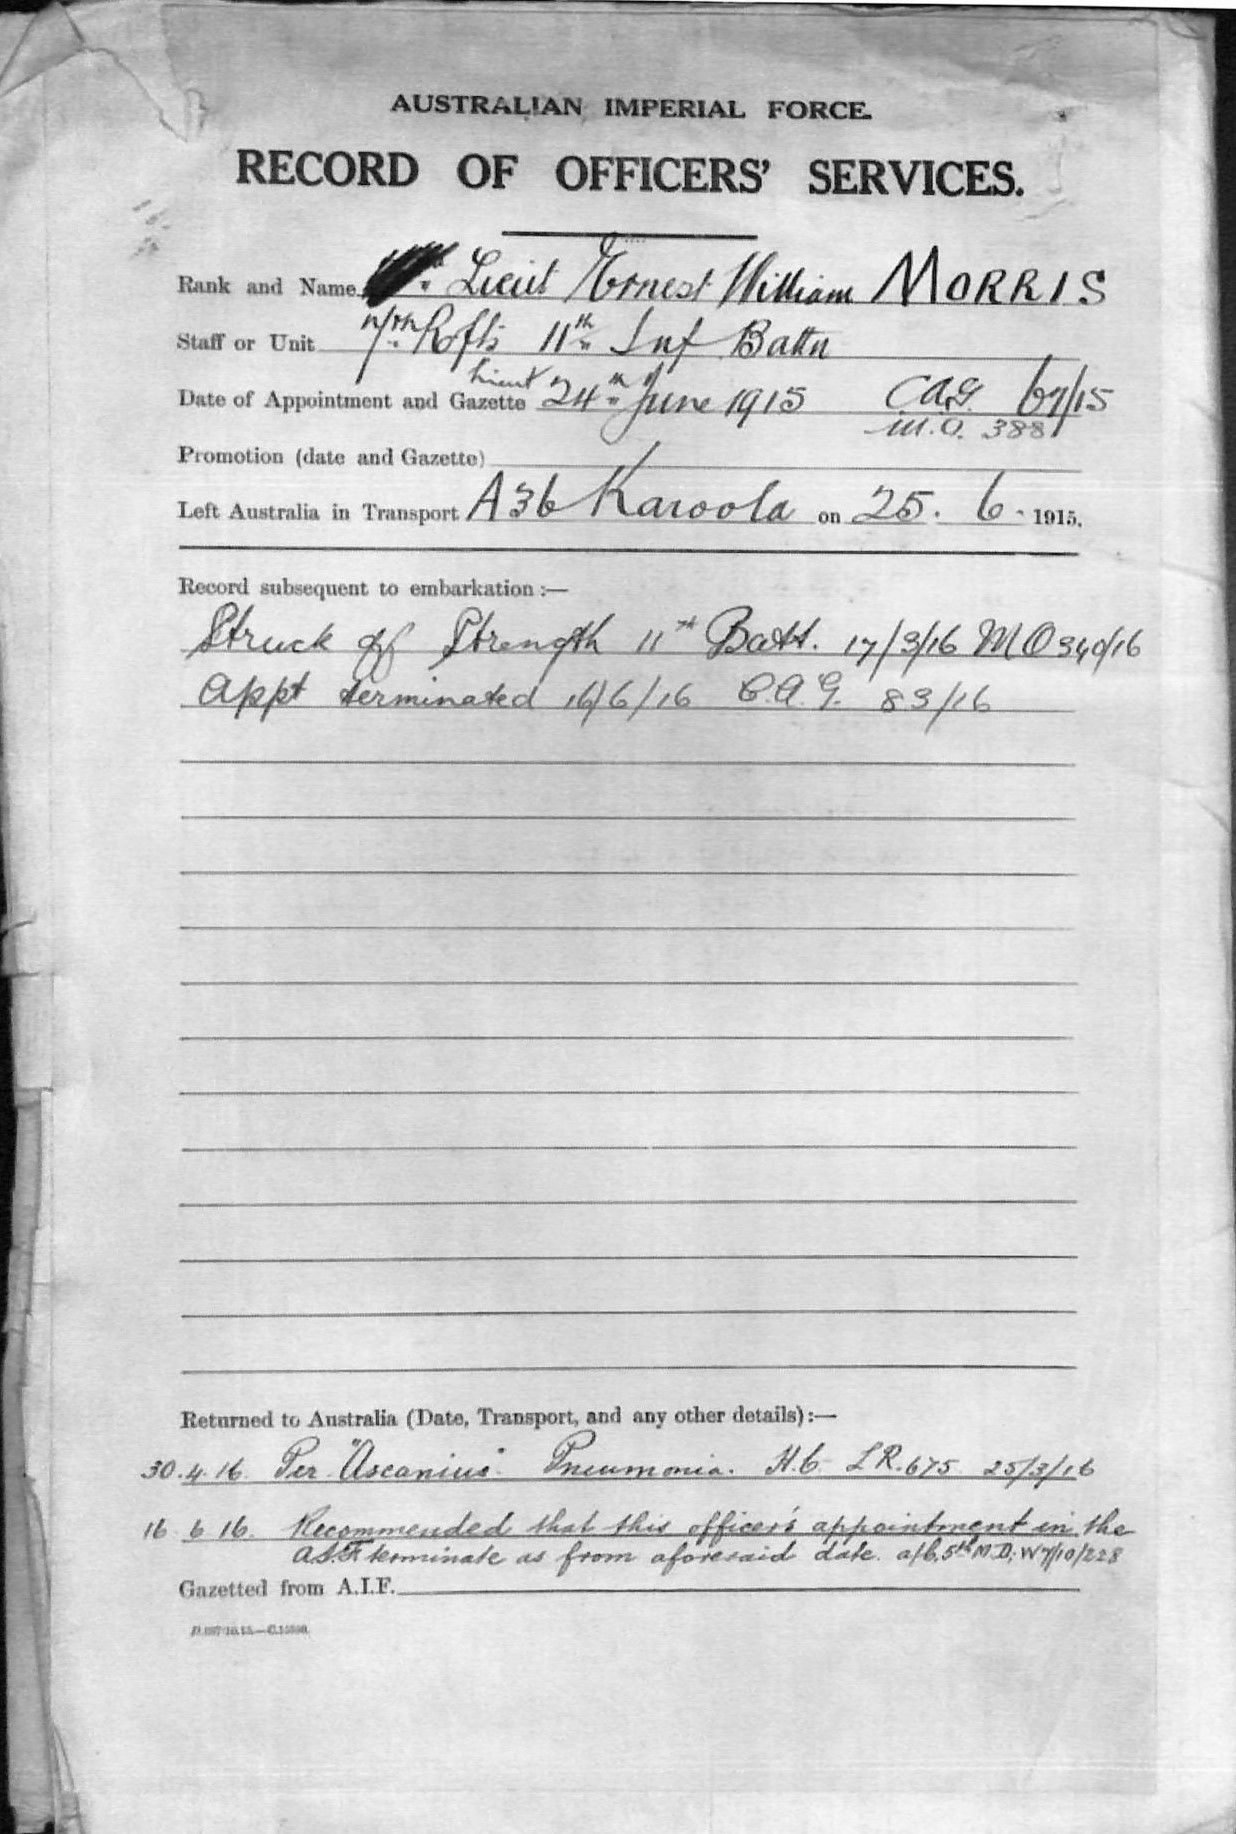 AUSTRALIAN IMPERIAL FORCE.
RECORD OF OFFICERS' SERVICES.
Rank and Name Lieut Ernest William MORRIS
Staff or Unit 7th Rfts 11th Inf Battn
Lieut
Date of Appointment and Gazette 24th June 1915 C.A.G. 67/15
M.O. 388
Promotion (date and Gazette)
Left Australia in Transport A36 Karoola on 25. 6. 1915.
Record subsequent to embarkation :—
Struck off Strength 11th Batt. 17/3/16 M O 340/16
Appt terminated 16/6/16 C.A.G. 83/16
Returned to Australia (Date, Transport, and any other details) :—
30.4.16. Per "Ascanius" Pneumonia. H.C. LR.675 25/3/16
16 6 16. Recommended that this officer's appointment in the
A.I.F. terminate as from aforesaid date. 5th M.D; W7/10/228
Gazetted from A.I.F.